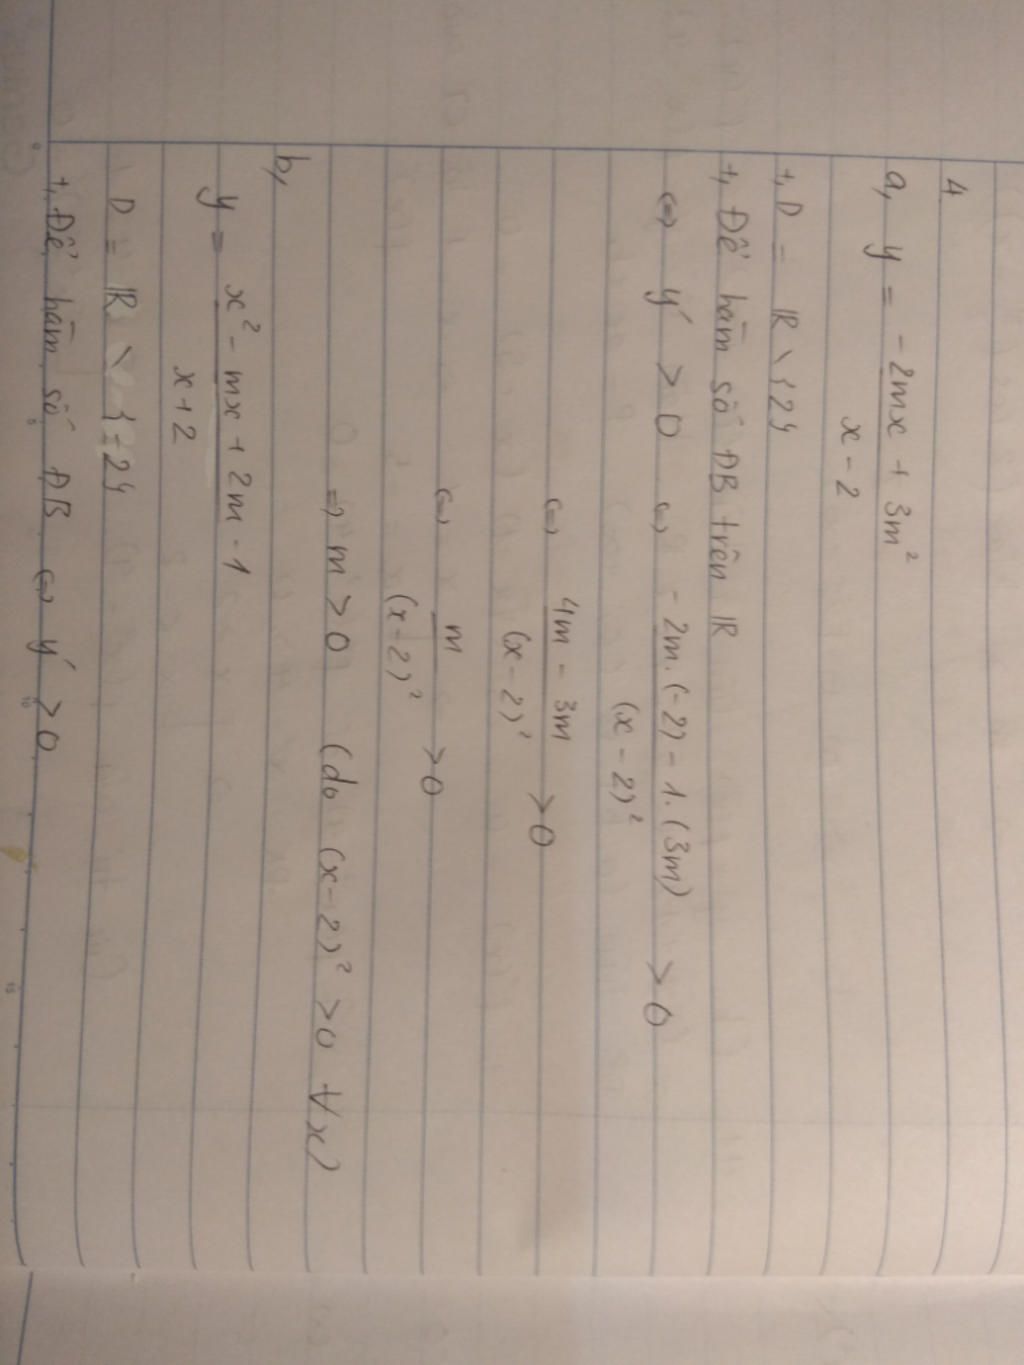 4
a, y = \frac{-2mx + 3m^2}{x - 2}
+, D = R \ {2}
+, Để hàm số ĐB trên R
<=> y' > 0 <=> \frac{-2m.(-2) - 1.(3m)}{(x - 2)^2} > 0
<=> \frac{4m - 3m}{(x - 2)^2} > 0
<=> \frac{m}{(x - 2)^2} > 0
=> m > 0 (do (x - 2)^2 > 0 ∀x)
b,
y = \frac{x^2 - mx + 2m - 1}{x + 2}
D = R \ {-2}
+, Để hàm số ĐB <=> y' > 0